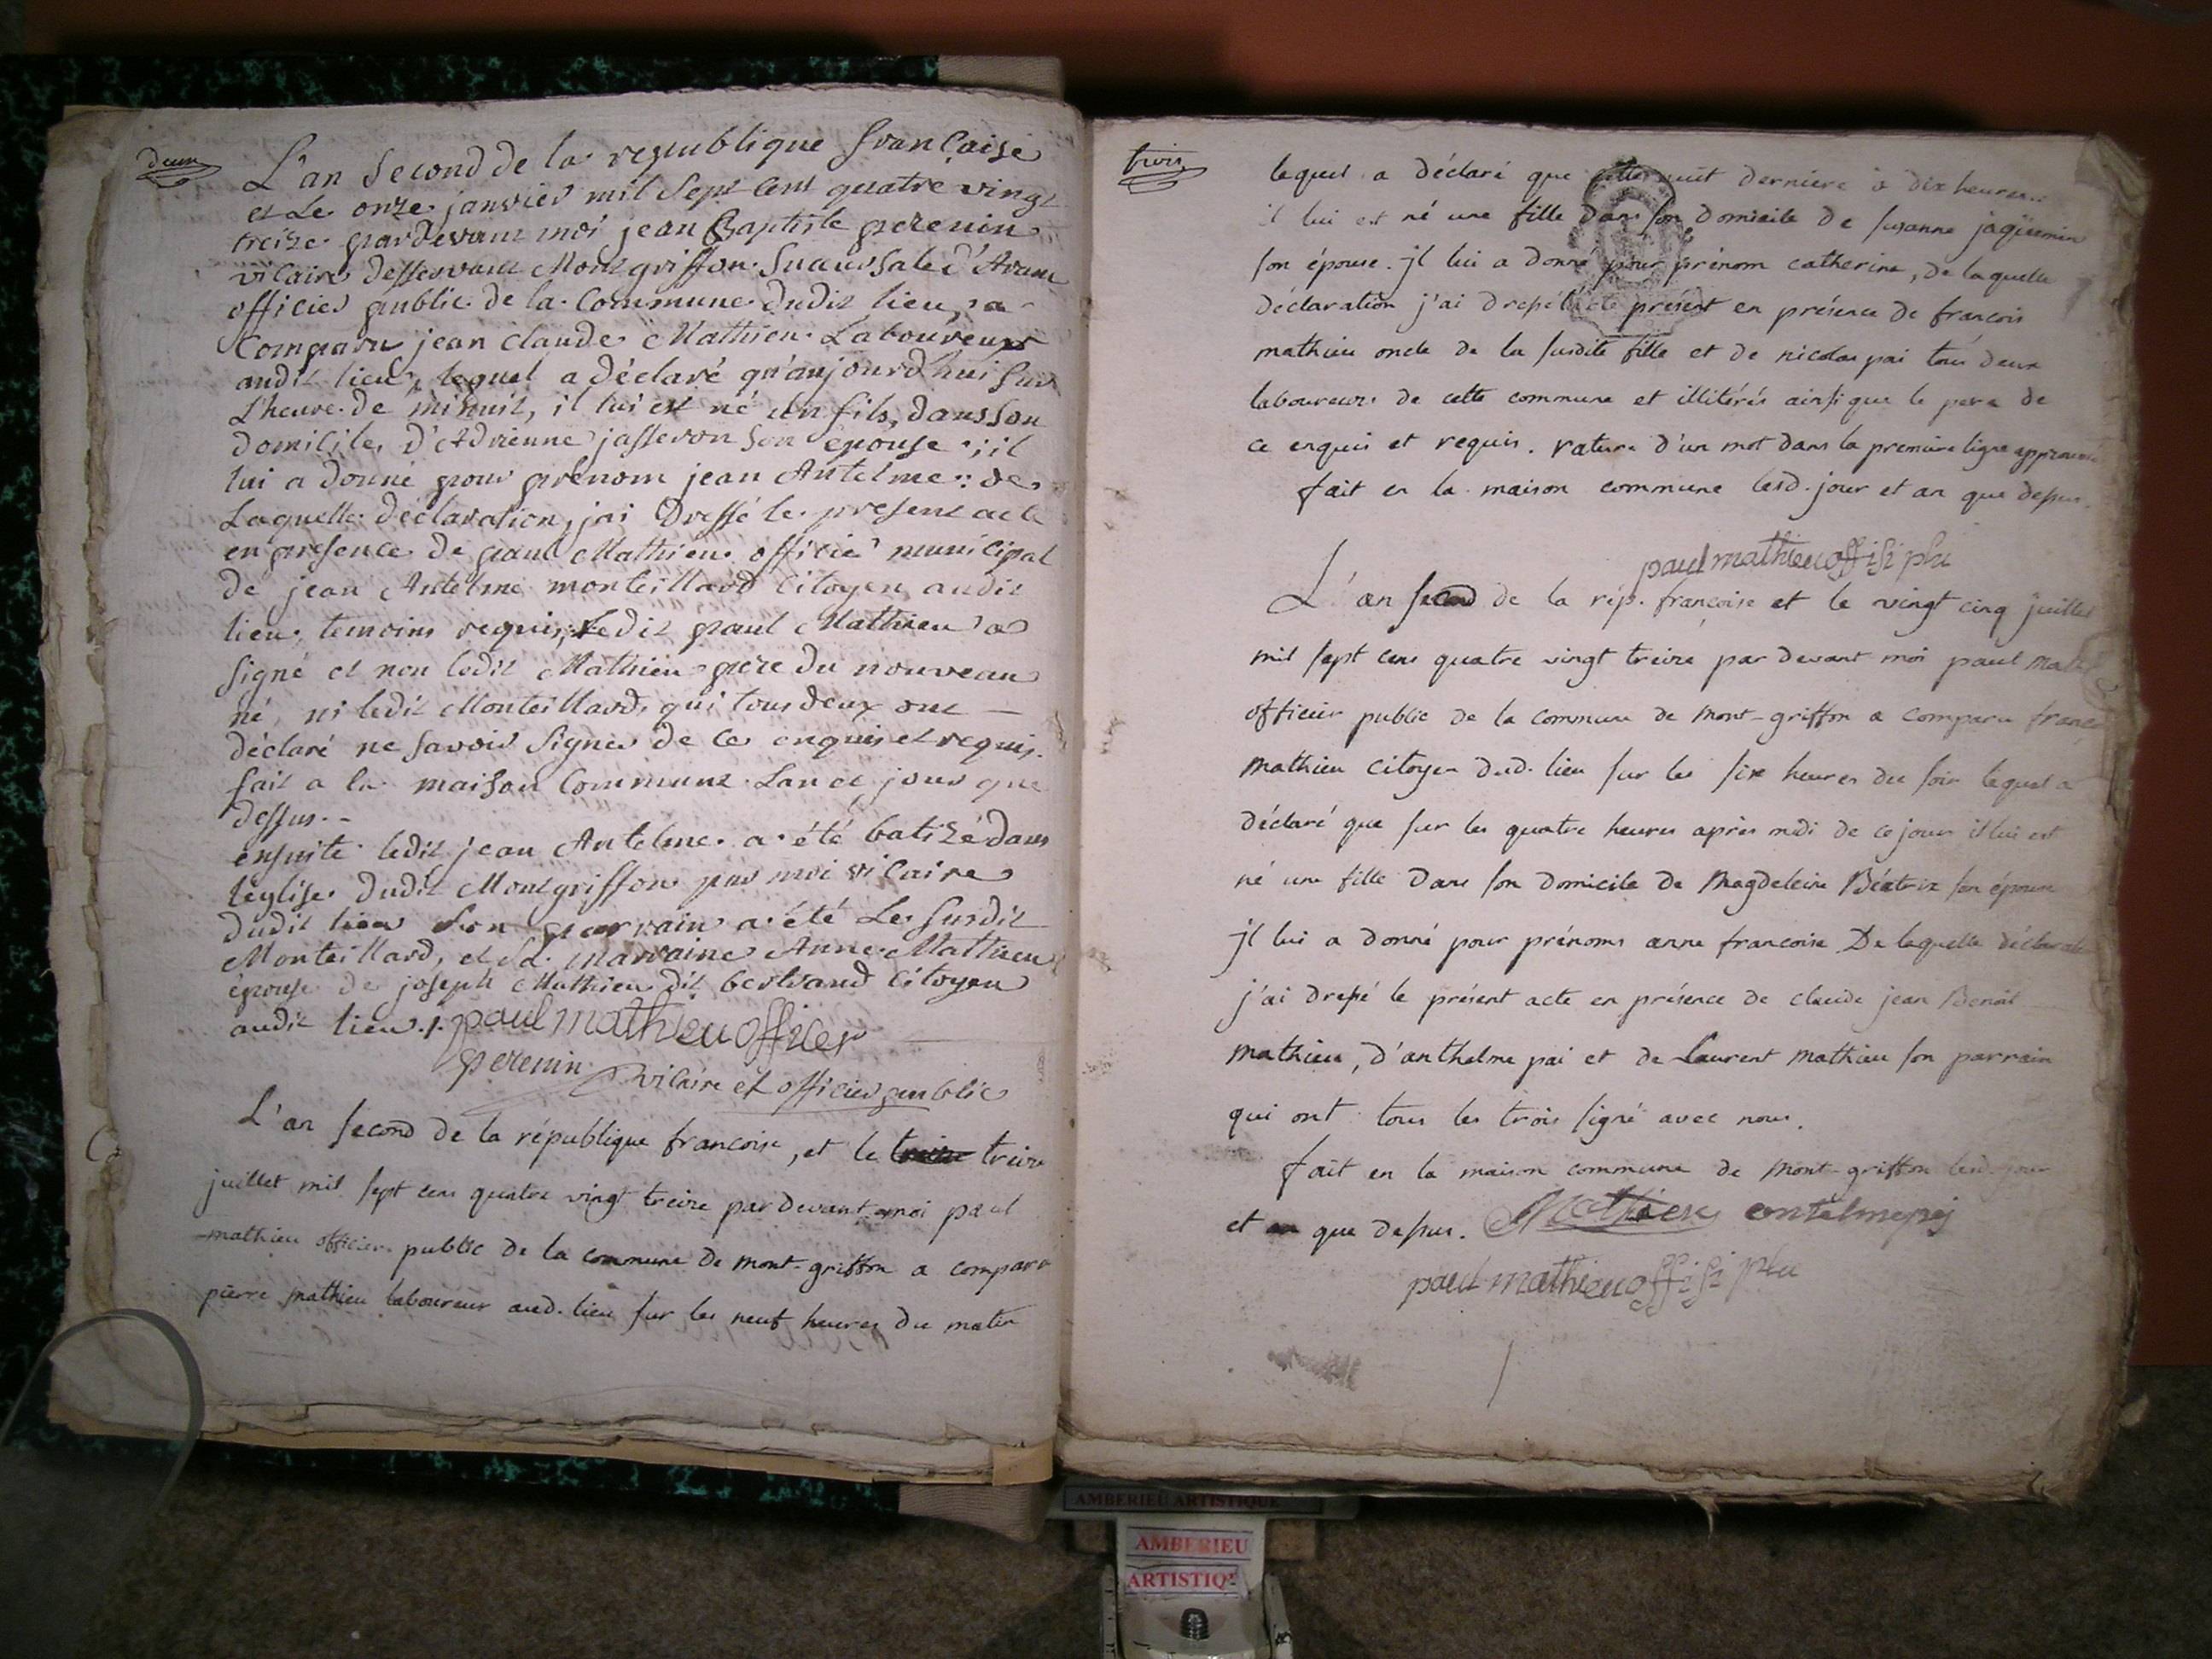 deux
L'an second de la republique française
et Le onze janvier mil sept cent quatre vingt
treize pardevant moi jean Baptiste perenin
vicaire desservant Montgriffon succursale d'Aranc
officier public de la Commune dudit lieu, a
Comparu jean claude Mathieu Laboureur
audit lieu, lequel a déclaré qu'aujourd'hui sur
L'heure de minuit, il lui est né un fils, dans son
domicile, d'Adrienne jasseron son épouse ; il
lui a donné pour prénom jean Antelme : de
Laquelle déclaration, jai dressé le present acte
en presence de paul Mathieu officier municipal
de jean Antelme monteillard Citoyen audit
lieu, temoins requis, Ledit paul Mathieu a
signé et non ledit Mathieu pere du nouveau
né, ni ledit Monteillard, qui tous deux ont
déclaré ne savoir signer de ce enquis et requis.
fait a la maison Commune Lan et jour que
dessus.
ensuite ledit jean Antelme a été batizé dans
l'église dudit Montgriffon par moi vicaire
dudit lieu son parrain a été Le susdit
Monteillard, et sa marraine Anne Mathieu
épouse de joseph Mathieu dit bertrand Citoyen
audit lieu ./. paul mathieu officier
perenin vicaire et officier public
L'an second de la république françoise, et le treize treize
juillet mil sept cens quatre vingt treize pardevant moi paul
mathieu officier public de la commune de mont-griffon a comparu
pierre mathieu laboureur aud. lieu sur les neuf heures du matin
trois
lequel a déclaré que cette nuit derniere à dix heures
il lui est né une fille dans son domicile de susanne jaquemin
son épouse. jl lui a donné pour prénom catherine, de laquelle
déclaration j'ai dressé l'acte présent en présence de françois
mathieu oncle de la susdite fille et de nicolas pai tous deux
laboureurs de cette commune et illitérés ainsi que le pere de
ce enquis et requis. rature d'un mot dans la premiere ligne approuvée
fait en la maison commune lesd. jour et an que dessus.
paul mathieu offisi plu
L'an second de la rép. françoise et le vingt cinq juillet
mil sept cens quatre vingt treize par devant moi paul
officier public de la commune de mont-griffon a comparu
mathieu citoyen dud. lieu sur les six heures du soir lequel a
déclaré que sur les quatre heures après midi de ce jour il lui est
né une fille dans son domicile de Magdeleine Béatrix son épouse
jl lui a donné pour prénoms anne françoise De laquelle
j'ai dressé le présent acte en présence de claude jean Benoit
mathieu, d'anthelme pai et de Laurent mathieu son parrain
qui ont tous les trois signé avec nous.
fait en la maison commune de mont-griffon lesd. jour
et an que dessus. Mathieu antelme pej
paul mathieu offisi plu
AMBERIEU ARTISTIQUE
AMBERIEU
ARTISTIQ